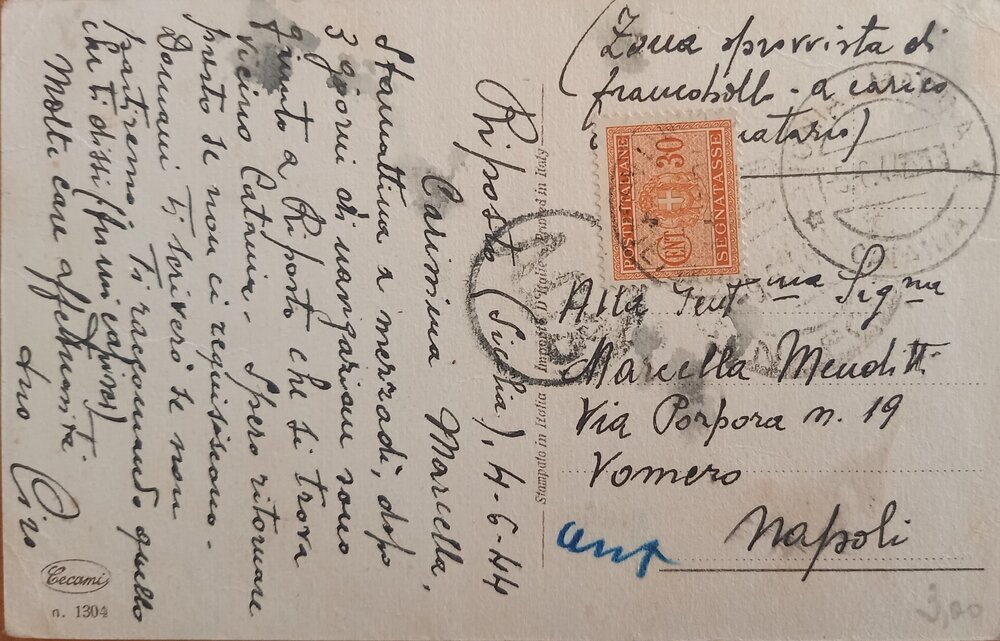 Riposto (Sicilia), 4-6-44
Carissima Marcella,
Stamattina a merzadì, dopo
3 giorni di navigazione sono
giunto a Riposto che si trova
vicino Catania - Spero ritornare
presto se non ci requisiscono -
Domani ti scriverò se non
partiremo; Ti raccomando quello
che ti dissi (fui mi capirai)
Molte care affettuosità
tuo Ciro
Cecami
n. 1304
Stampato in Italia Imprimé D'Italie Printed in Italy
(Zona sprovvista di
francobolli - a carico
natario)
POSTE ITALIANE
CENT 30
SEGNATASSE
Alla Gent.ma Sig.na
Marcella Menditti
Via Porpora n. 19
Vomero
Napoli
3,00